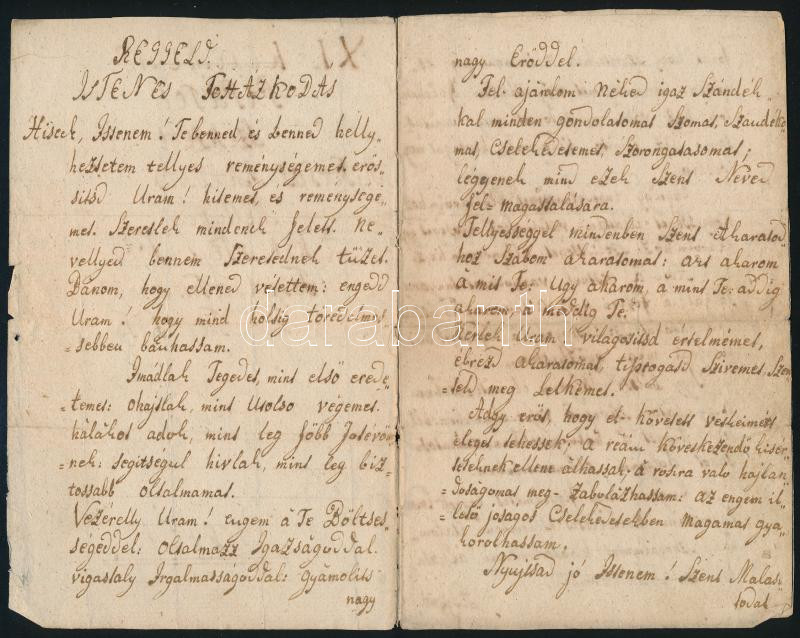 REGGELI
ISTENES FOHAZKODAS
Hiszek, Istenem! Te benned és benned helly,,
heztetem tellyes reménységemet. erős,,
sitsd Uram! hitemet, és reménysége,,
met. Szeretlek mindenek felett. Ne,,
vellyed bennem Szeretednek tüzét.
Bánom, hogy ellened vétettem: engedd
Uram! hogy mind holtig töredelmes,,
=sebben bánhassam.
Imádlak Tégedet, mint első erede,,
=temet: ohajtlak, mint Utolso végemet.
hálákot adok, mint leg főbb Jótevőm,,
=nek: segitségul hivlak, mint leg biz,,
tossabb oltalmamat.
Vezerelly Uram! engem à Te Böltses,,
ségeddel: oltalmazz Igazságoddal.
vigastaly Irgalmasságoddal: gyámolits
nagy
nagy Erőddel.
Fel ajánlom Néked igaz Szándék,,
kal minden gondolatomat Szómat, Szándéko,,
mat, Cselekedetemet, Szorongatásomat;
légyenek mind ezek Szent Neved
fel=magasztalására.
Tellyességgel mindenben Szent Akaratod,,
hoz Szabom akaratomat: azt akarom
à mit Te: Ugy akarom, à mint Te: addig
akarom, à meddig Te.
Kérlek Uram világositsd értelmémet,
ébrezd akaratomat, tisztogasd Szivemet, Szen,,
=teld meg Lelkémet.
Adgy erőt, hogy el-követett vétkeimért
eleget tehessek: à reám következendő kisér,,
teteknek ellene álhassak: à roszra valo hajlan,,
dóságomat meg-zabolázhassam: az engem il,,
=lető jóságos Cselekedetekben magamat gya,,
korolhassam.
Nyujtsad jó Istenem! Szent Malasz,,
todat
darabanth